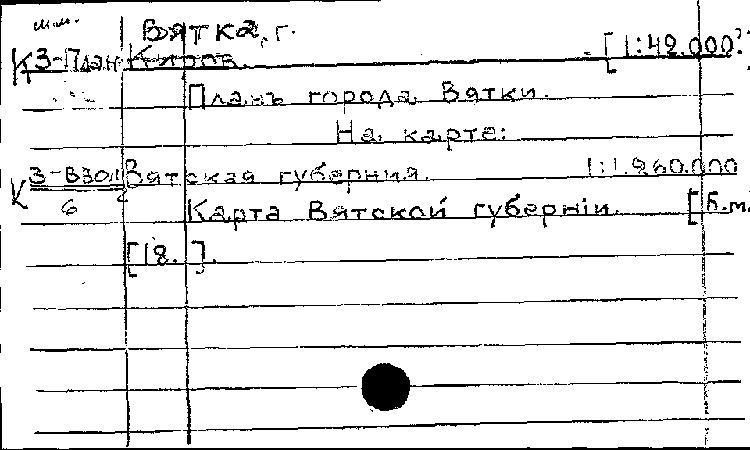 Вятка, г.
К З-План Киров. [1:42.000?]
Планъ города Вятки.
На карте:
К З-В301 Вятская губерния. 1:1.260.000
6 Карта Вятской губернiи. [Б.м.
[18. ].